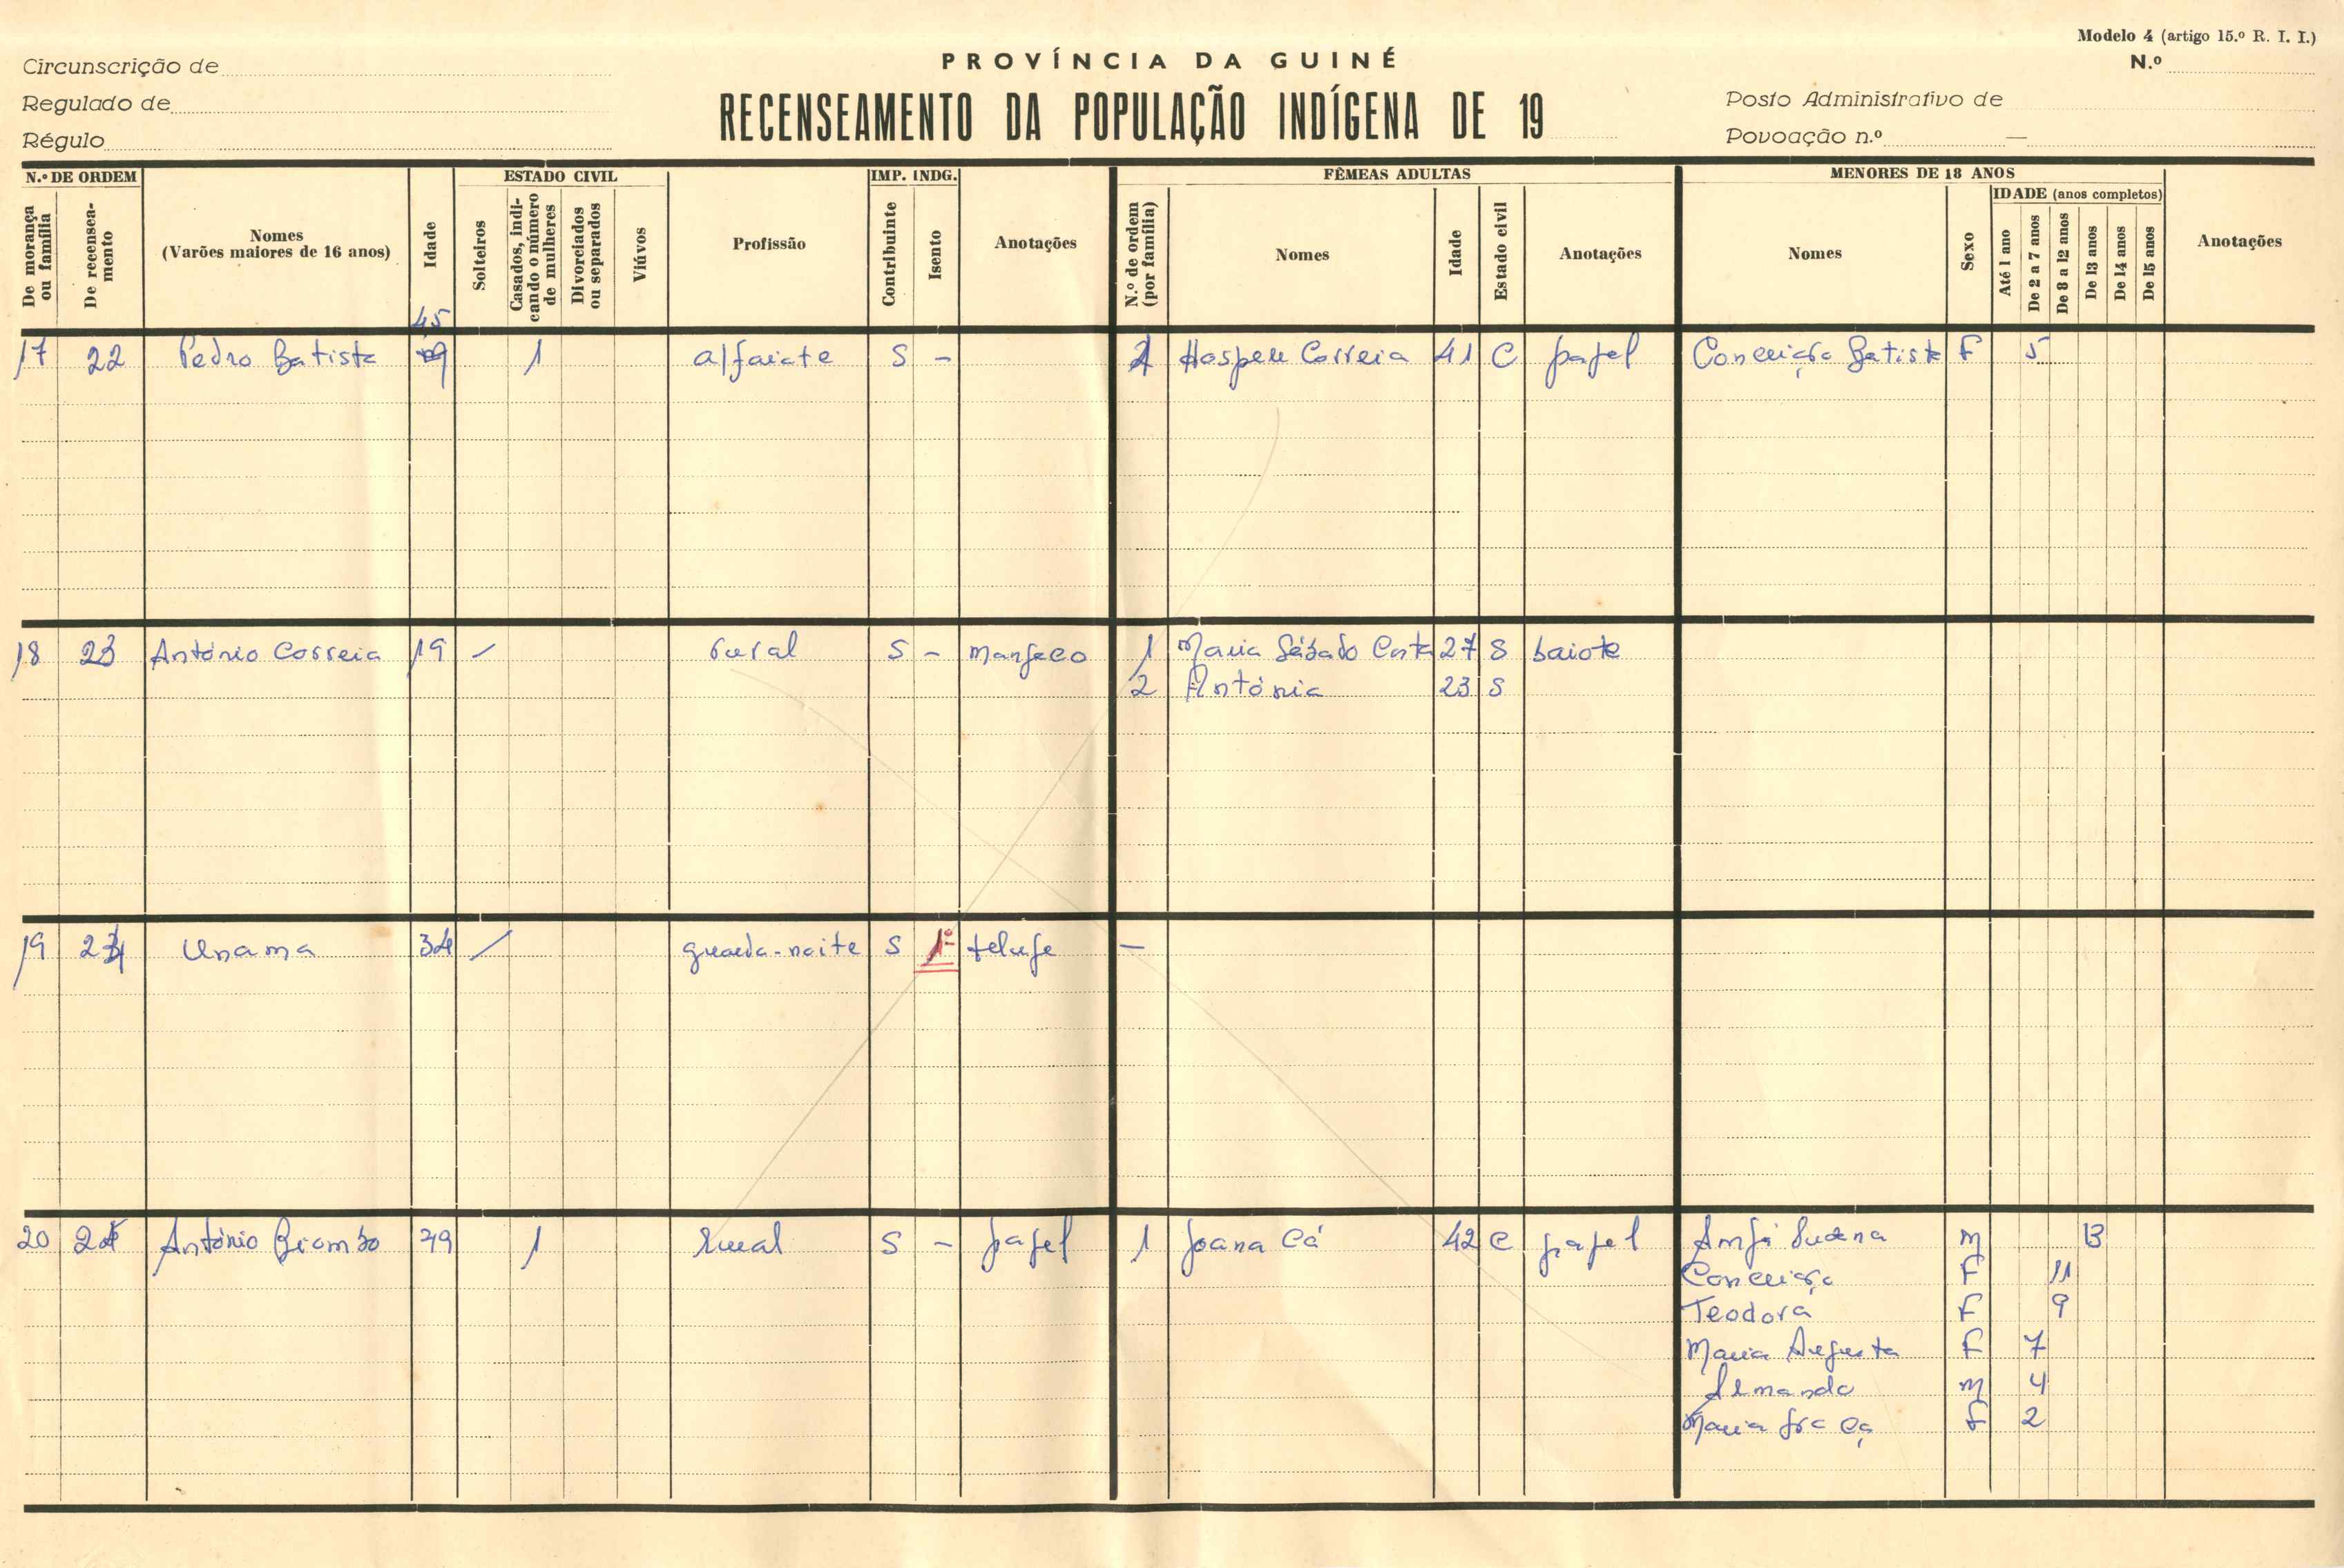 Modelo 4 (artigo 15.º R. I. I.)
Circunscrição de
PROVÍNCIA DA GUINÉ
N.º
Regulado de
RECENSEAMENTO DA POPULAÇÃO INDÍGENA DE 19
Posto Administrativo de
Régulo
Povoação n.º —
N.º DE ORDEM
De morança ou família
De recenseamento
Nomes
(Varões maiores de 16 anos)
Idade
ESTADO CIVIL
Solteiros
Casados, indicando o número de mulheres
Divorciados ou separados
Viúvos
Profissão
IMP. INDG.
Contribuinte
Isento
Anotações
FÊMEAS ADULTAS
N.º de ordem (por família)
Nomes
Idade
Estado civil
Anotações
MENORES DE 18 ANOS
Nomes
Sexo
IDADE (anos completos)
Até 1 ano
De 2 a 7 anos
De 8 a 12 anos
De 13 anos
De 14 anos
De 15 anos
Anotações
45
17 22 Pedro Batista 1 alfaiate S - Correia 41 C papel Conceição Batista F 5
18 23 António Correia 19 / rural S - manjaco 1 Maria Sábado Costa 27 S baiote
2 Antónia 23 S
19 24 Unama 34 / guarda-noite S 1º felupe —
20 António Biombo 49 1 rural S - papel 1 Joana Cá 42 C papel m 13
Conceição F 11
Teodora F 9
Maria Augusta F 7
Armando m 4
Maria F 2